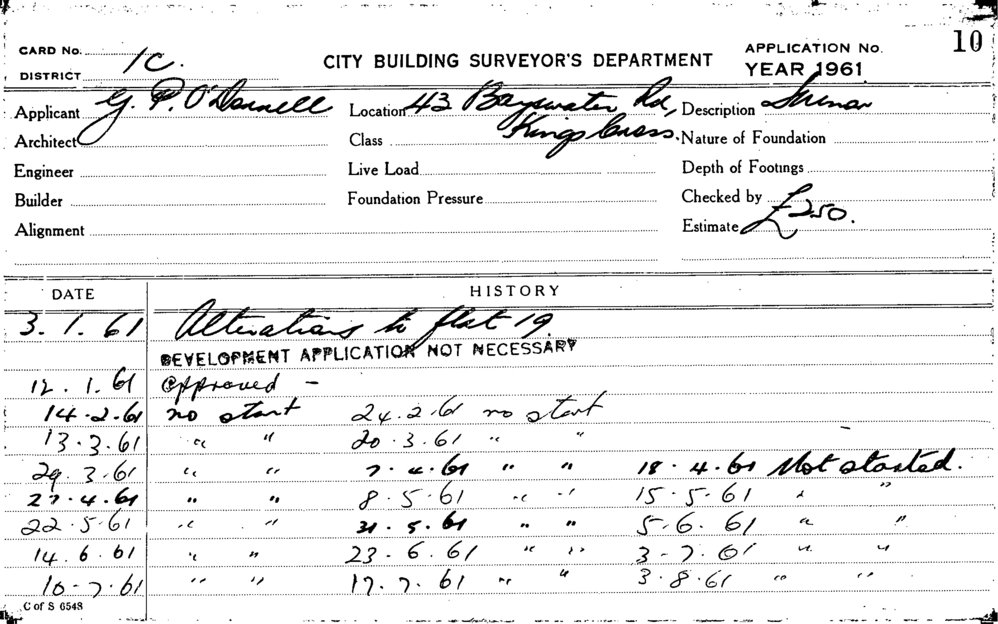 CARD No.
DISTRICT 1C.
CITY BUILDING SURVEYOR'S DEPARTMENT
APPLICATION No. 10
YEAR 1961
Applicant G. P. O'Donnell
Location 43 Bayswater Rd,
Kings Cross.
Description
Architect
Class
Nature of Foundation
Engineer
Live Load
Depth of Footings
Builder
Foundation Pressure
Checked by
Alignment
Estimate £250.
DATE HISTORY
3. 1. 61 Alterations to flat 19
DEVELOPMENT APPLICATION NOT NECESSARY
12. 1. 61 Approved -
14.2.61 no start 24.2.61 no start
13.3.61 " " 20.3.61 " "
29.3.61 " " 7.4.61 " " 18.4.61 Not started.
27.4.61 " " 8.5.61 " " 15.5.61 " "
22.5.61 " " 31.5.61 " " 5.6.61 " "
14.6.61 " " 23.6.61 " " 3-7.61 " "
10-7.61 " " 17.7.61 " " 3.8.61 " "
C of S 6548